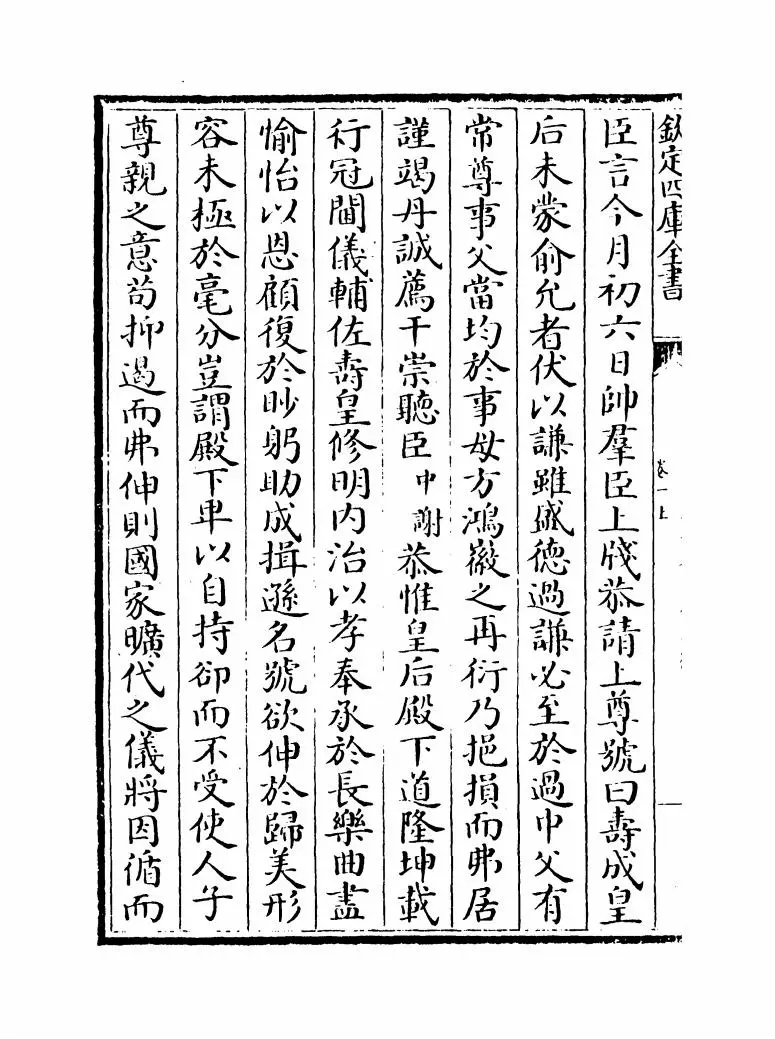 欽定四庫全書
卷一上
臣言今月初六日帥羣臣上牋恭請上尊號曰壽成皇
后未蒙俞允者伏以謙雖盛德過謙必至於過中父有
常尊事父當均於事母方鴻徽之再衍乃挹損而弗居
謹竭丹誠薦干崇聽臣中謝恭惟皇后殿下道隆坤載
行冠閫儀輔佐壽皇修明内治以孝奉承於長樂曲盡
愉怡以恩顧復於眇躬助成揖遜名號欲伸於歸美形
容未極於毫分豈謂殿下卑以自持卻而不受使人子
尊親之意茍抑遏而弗伸則國家曠代之儀將因循而